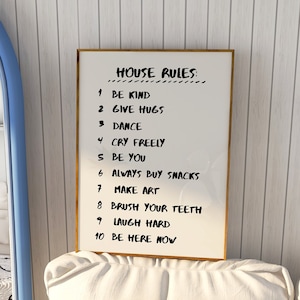 HOUSE RULES:
1 BE KIND
2 GIVE HUGS
3 DANCE
4 CRY FREELY
5 BE YOU
6 ALWAYS BUY SNACKS
7 MAKE ART
8 BRUSH YOUR TEETH
9 LAUGH HARD
10 BE HERE NOW